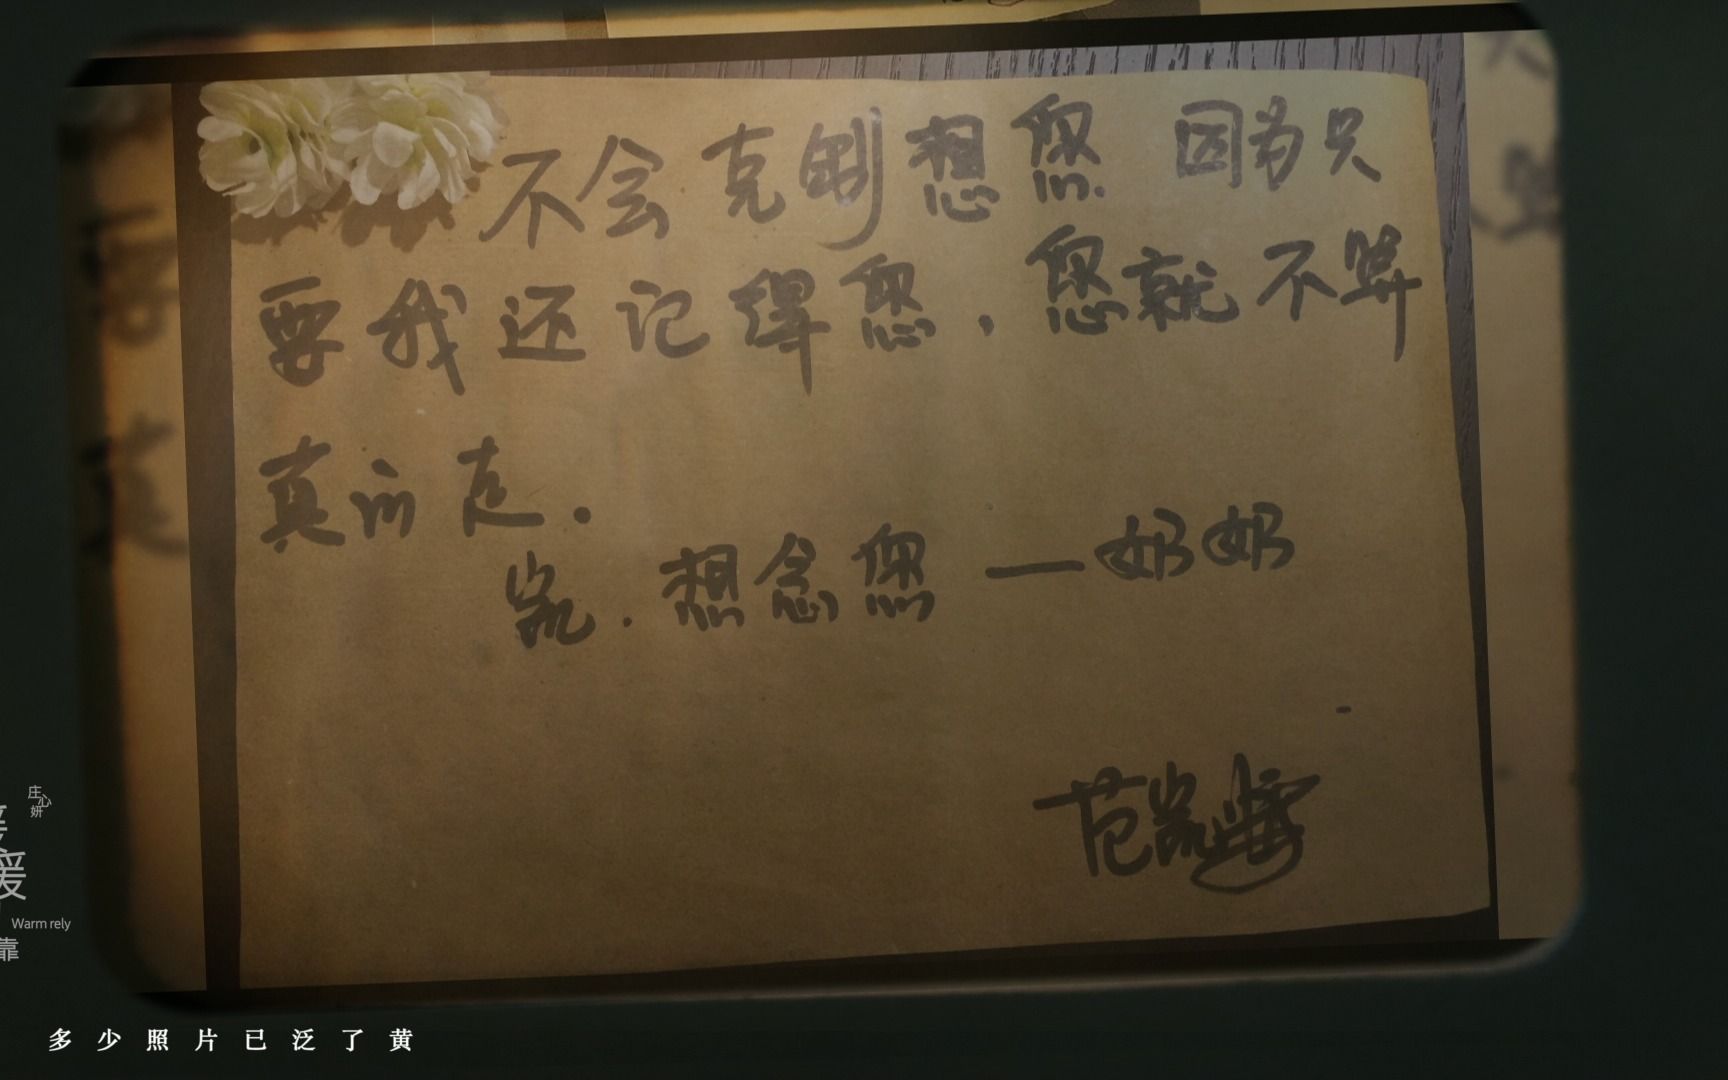 不会克制想您 因为只
要我还记得您，您就不算
真的走.
凯.想念您—奶奶
范凯
庄心妍
暖
Warm rely
靠
多少照片已泛了黄